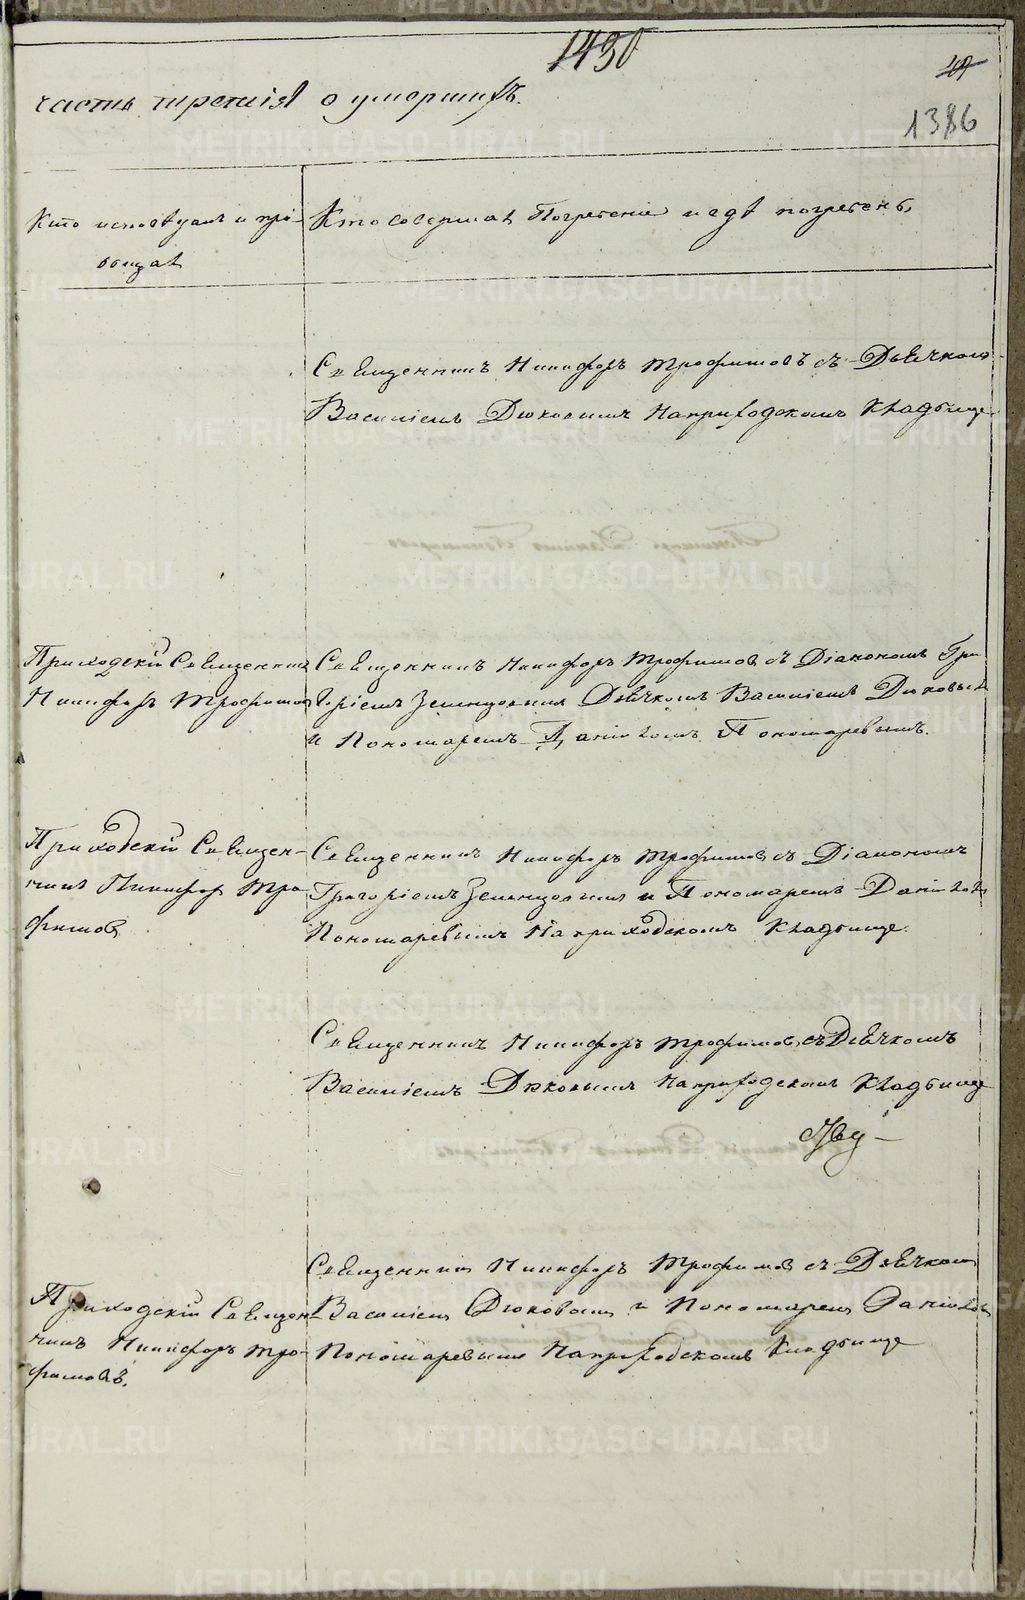 1430
1386
часть третія о умершихъ.
Кто исповѣдалъ и прі-
общалъ
Кто совершалъ Погребеніе и гдѣ погребенъ
Священникъ Никифоръ Трофимовъ съ Дьячкомъ
Василіемъ Дюковымъ На приходскомъ Кладбище
Приходскій Священникъ
Никифоръ Трофимовъ
Священникъ Никифоръ Трофимовъ съ Діакономъ Гри
горіемъ Дьячкомъ Василіемъ Дюковымъ
и Пономаремъ Даніиломъ Пономаревымъ.
Приходскій Священ-
никъ Никифоръ Тро-
фимовъ
Священникъ Никифоръ Трофимовъ съ Діакономъ
Григоріемъ и Пономаремъ Даніиломъ
Пономаревымъ На приходскомъ Кладбище.
Священникъ Никифоръ Трофимовъ съ Дьячкомъ
Василіемъ Дюковымъ На приходскомъ Кладбище
Священникъ Никифоръ Трофимовъ съ Дьячкомъ
Василіемъ Дюковымъ и Пономаремъ Даніиломъ
Пономаревымъ На приходскомъ Кладбище
Приходскій Священ-
никъ Никифоръ Тро-
фимовъ.
METRIKI.GASO-URAL.RU